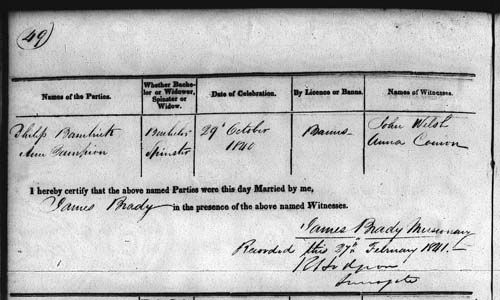 49
Names of the Parties. Whether Bachelor or Widower, Spinster or Widow. Date of Celebration. By Licence or Banns. Names of Witnesses.
Philip Bachelor 29th October Banns John Welsh
Ann Spinster 1840 Anna
I hereby certify that the above named Parties were this day Married by me,
James Brady in the presence of the above named Witnesses.
James Brady Missionary
Recorded this 27th February 1841.
Surrogate